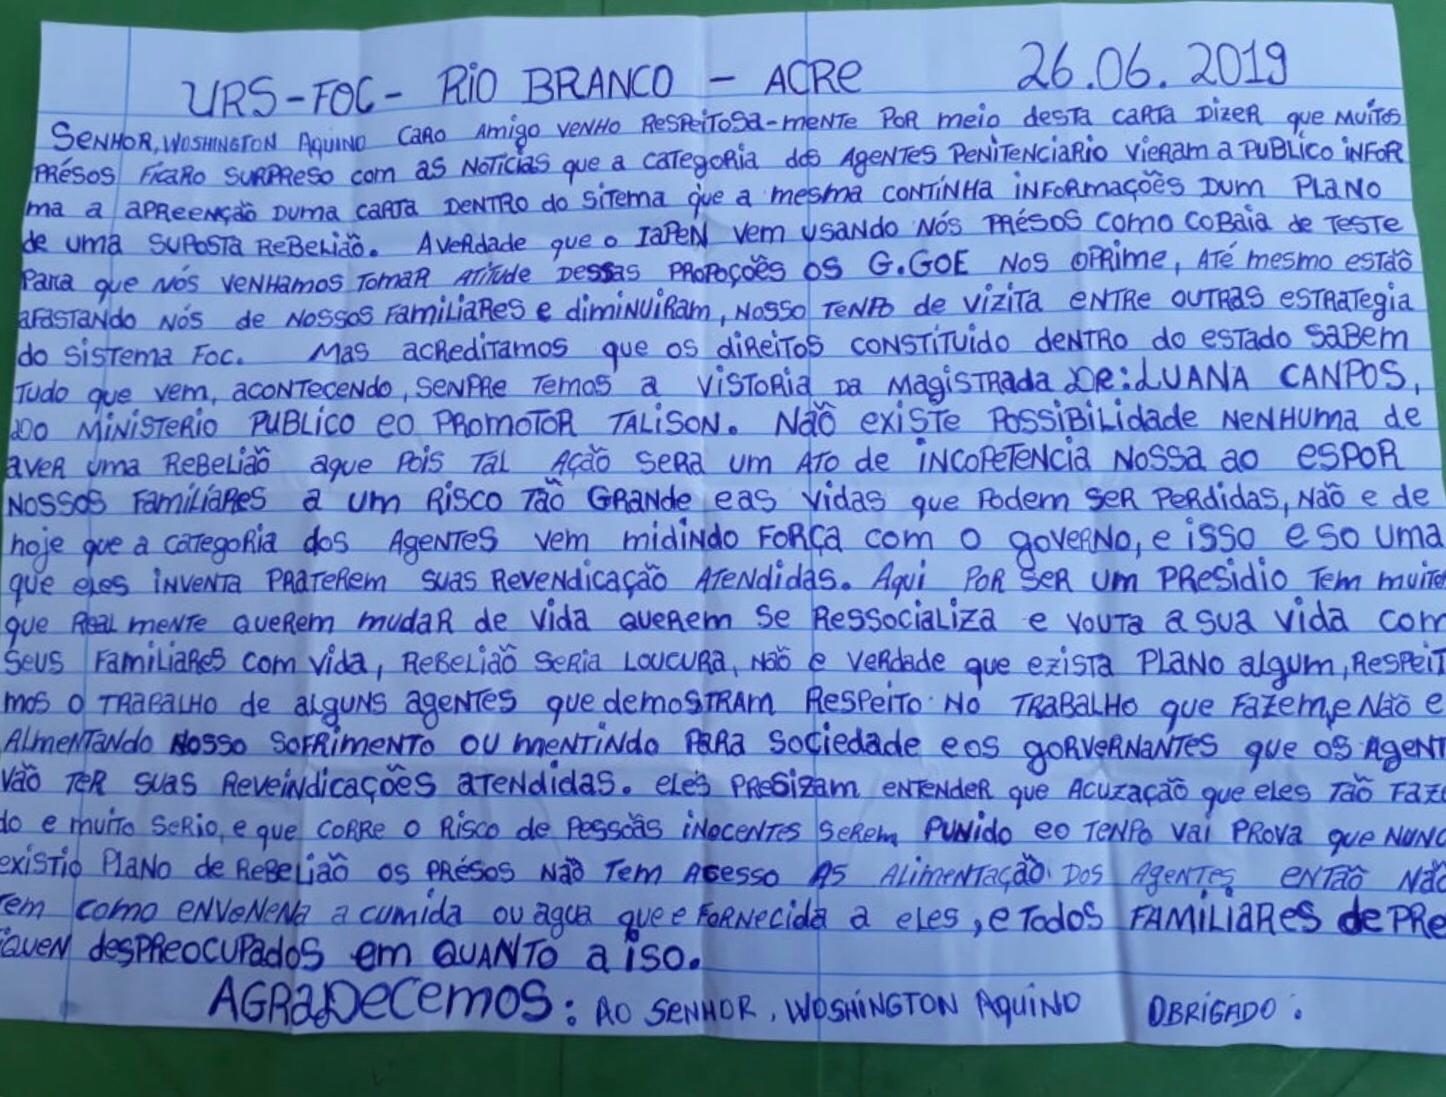 URS-FOC- RIO BRANCO - ACRE 26.06.2019
SENHOR, WOSHINGTON AQUINO CARO AMIGO VENHO RESPEITOSA-MENTE POR MEIO DESTA CARTA DIZER QUE MUITOS
PRÉSOS FICARO SURPRESO COM AS NOTÍCIAS QUE A CATEGORIA DOS AGENTES PENITENCIARIO VIERAM A PUBLICO INFOR
MA A APREENÇÃO DUMA CARTA DENTRO DO SITEMA QUE A MESMA CONTINHA INFORMAÇÕES DUM PLANO
DE UMA SUPOSTA REBELIÃO. AVERDADE QUE O IAPEN VEM USANDO NÓS PRÉSOS COMO COBAIA DE TESTE
PARA QUE NÓS VENHAMOS TOMAR ATITUDE DESSAS PROPOÇÕES OS G.GOE NOS OPRIME, ATÉ MESMO ESTÃO
AFASTANDO NÓS DE NOSSOS FAMILIARES E DIMINUIRAM, NOSSO TENPO DE VIZITA ENTRE OUTRAS ESTRATEGIA
DO SISTEMA FOC. MAS ACREDITAMOS QUE OS DIREITOS CONSTITUIDO DENTRO DO ESTADO SABEM
TUDO QUE VEM, ACONTECENDO, SENPRE TEMOS A VISTORIA DA MAGISTRADA DR: LUANA CANPOS,
DO MINISTERIO PUBLICO EO PROMOTOR TALISON. NÃO EXISTE POSSIBILIDADE NENHUMA DE
AVER UMA REBELIÃO AQUE POIS TAL AÇÃO SERA UM ATO DE INCOPETENCIA NOSSA AO ESPOR
NOSSOS FAMILIARES A UM RISCO TÃO GRANDE EAS VIDAS QUE PODEM SER PERDIDAS, NÃO E DE
HOJE QUE A CATEGORIA DOS AGENTES VEM MIDINDO FORÇA COM O GOVERNO, E ISSO E SO UMA
QUE ELES INVENTA PRATEREM SUAS REVENDICAÇÃO ATENDIDAS. AQUI POR SER UM PRESIDIO TEM MUITO
QUE REAL MENTE QUEREM MUDAR DE VIDA QUEREM SE RESSOCIALIZA E VOUTA A SUA VIDA COM
SEUS FAMILIARES COM VIDA, REBELIÃO SERIA LOUCURA, NÃO E VERDADE QUE EZISTA PLANO ALGUM, RESPEIT
MOS O TRABALHO DE ALGUNS AGENTES QUE DEMOSTRAM RESPEITO NO TRABALHO QUE FAZEM, E NÃO E
ALMENTANDO NOSSO SOFRIMENTO OU MENTINDO PARA SOCIEDADE EOS GORVERNANTES QUE OS AGENT
VÃO TER SUAS REVEINDICAÇÕES ATENDIDAS. ELES PRESIZAM ENTENDER QUE ACUZAÇÃO QUE ELES TÃO FAZE
DO E MUITO SERIO, E QUE CORRE O RISCO DE PESSOAS INOCENTES SEREM PUNIDO EO TENPO VAI PROVA QUE NUNC
EXISTIO PLANO DE REBELIÃO OS PRÉSOS NÃO TEM ACESSO AS ALIMENTAÇÃO DOS AGENTES ENTÃO NÃO
TEM COMO ENVENENA A CUMIDA OU AGUA QUE E FORNECIDA A ELES, E TODOS FAMILIARES DE PRE
IQUEN DESPREOCUPADOS EM QUANTO A ISO.
AGRADECEMOS: AO SENHOR, WOSHINGTON AQUINO OBRIGADO: